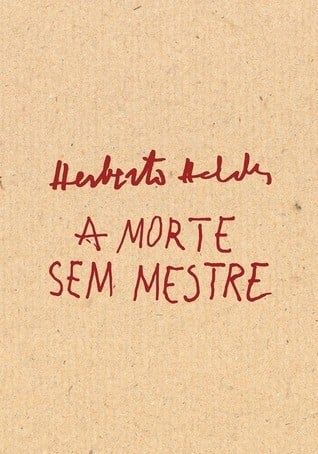 Herberto Helder
A MORTE
SEM MESTRE